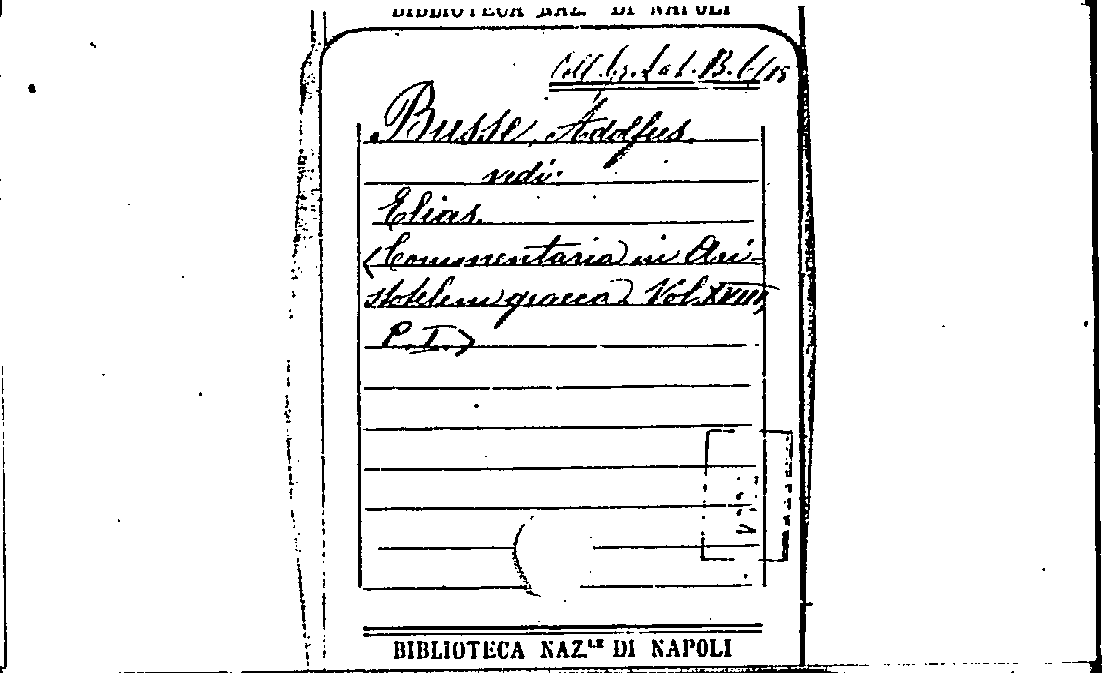 BIBLIOTECA NAZ. DI NAPOLI
Coll. Gr. Lat. B. 6/18
Busse, Adolfus.
vedi:
Elias.
(Commentaria in Ari-
stotelem graeca) Vol. XVIII,
P. I.)
BIBLIOTECA NAZ.LE DI NAPOLI